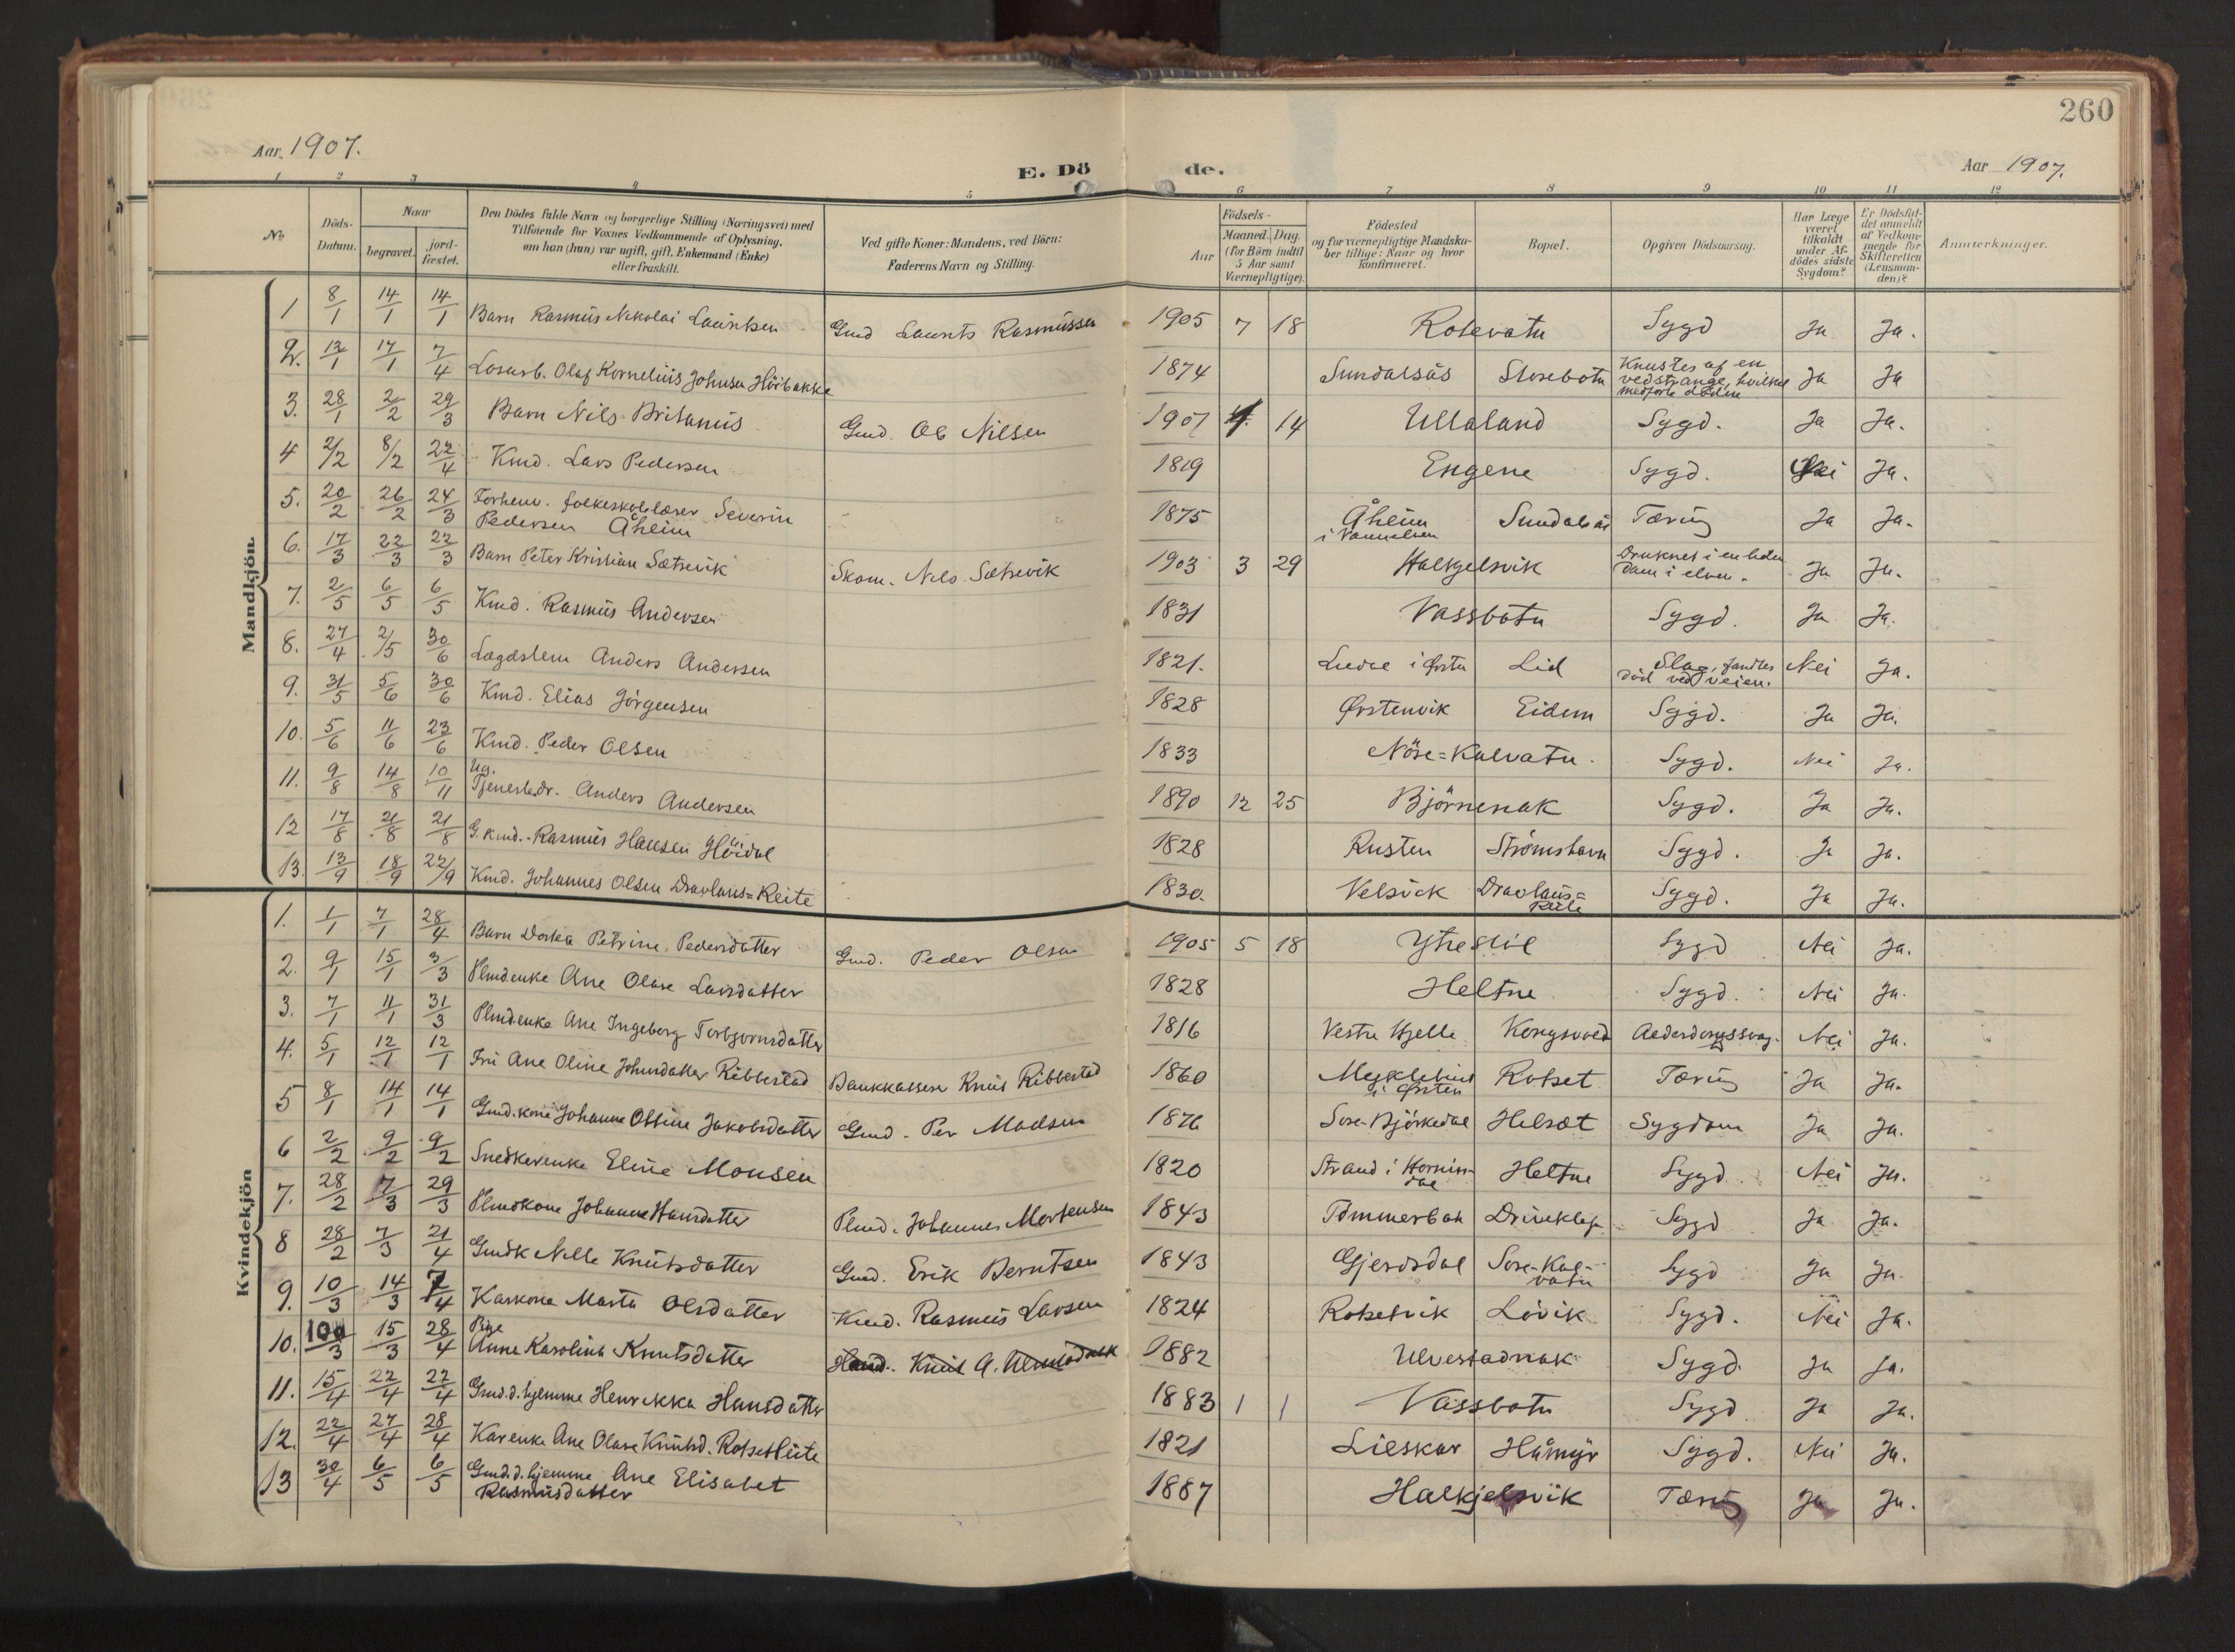 260
Aar. 1907.
E. Dö
de.
Aar 1907.
1 2 3 4 5 6 7 8 9 10 11 12
No
Döds-
Datum.
Naar
begravet.
jord-
fæstet.
Den Dödes fulde Navn og borgerlige Stilling (Næringsvei) med
Tilføiende for Voxnes Vedkommende af Oplysning,
om han (hun) var ugift, gift, Enkemand (Enke)
eller fraskilt.
Ved gifte Koner: Mandens, ved Börn:
Faderens Navn og Stilling.
Födsels-
Aar
Maaned. Dag.
(for Börn indtil
5 Aar samt
Værnepligtige).
Födested
og for værnepligtige Mandska-
ber tillige: Naar og hvor
konfirmeret.
Bopæl.
Opgiven Dödsaarsag.
Har Læge
været
tilkaldt
under Af-
dödes sidste
Sygdom?
Er Dödsfal-
det anmeldt
af Vedkom-
mende for
Skifteretten
(Lensman-
den)?
Anmærkninger.
Mandkjön.
1 8/1 14/1 14/1 Barn Rasmus Nikolai Lauritsen Gmd Laurits Rasmussen 1905 7 18 Rotevatn Sygd Ja Ja.
2. 13/1 17/1 7/4 Losarb. Olaf Kornelius Johnsen Höibakke 1874 Sundalsås Storebotn Knustes af en
vedstrange, hvilket
medførte döden Ja Ja
3. 28/1 2/2 29/3 Barn Nils Britanus Gmd. Ole Nilsen 1907 14 Ullaland Sygd. Ja Ja.
4 2/2 8/2 22/4 Kmd. Lars Pedersen 1819 Engene Sygd. Nei Ja.
5. 20/2 26/2 24/3 Forhenv. folkeskolelærer Severin
Pedersen Åheim 1875 Åheim
i Vannelven Sundalsås Tæring Ja Ja.
6. 17/3 22/3 22/3 Barn Peter Kristian Sætrevik Skom. Nils Sætrevik 1903 3 29 Halkjelsvik Druknet i en liden
dam i elven. Ja Ja.
7. 2/5 6/5 6/5 Kmd. Rasmus Andersen 1831 Vassbotn Sygd. Ja Ja.
8. 27/4 2/5 30/6 Lægdslem Anders Andersen 1821. Lidal i Ørsten Lid Slag, fandtes
död ved veien. Nei Ja.
9. 31/5 5/6 30/6 Kmd. Elias Jörgensen 1828 Ørstenvik Eidem Sygd. Ja Ja.
10. 5/6 11/6 23/6 Kmd. Peder Olsen 1833 Nöre=Kalvatn Sygd. Nei Ja.
11. 9/8 14/8 10/11 Ug.
Tjenestedr. Anders Andersen 1890 12 25 Björnenak Sygd. Ja Ja.
12 17/8 21/8 21/8 G. Kmd. Rasmus Hansen Höidal 1828 Rusten Strömshavn Sygd. Ja Ja.
13. 13/9 18/9 22/9 Kmd. Johannes Olsen Dravlaus=Reite 1830. Velsvik Dravlaus=
Reite Sygd. Ja Ja.
Kvindekjön
1. 1/1 7/1 28/4 Barn Dorka Petrine Pedersdatter Gmd. Peder Olsen 1905 5 18 Ytrestöl Sygd Nei Ja.
2. 9/1 15/1 3/3 Plmdenke Ane Olave Larsdatter 1828 Heltne Sygd. Nei Ja.
3. 7/1 11/1 31/3 Plmdenke Ane Ingeborg Torbjornsdatter 1816 Vestre Hjelle Kongsvold Alderdomssvag. Nei Ja.
4. 5/1 12/1 12/1 Fru Ane Oline Johnsdatter Ribbestad Bankkasserer Knut Ribbestad 1860 Mycklebust
i Ørsten Rotset Tæring Ja Ja.
5 8/1 14/1 14/1 Gmd.kone Johanne Oline Jakobsdatter Gmd. Per Madsen 1876 Søre-Björkedal Helsæt Sygdom Ja Ja.
6 2/2 9/2 9/2 Snedkerenke Eline Monsen 1820 Strand i Hornin-
dal Heltne Sygd. Nei Ja.
7. 28/2 7/3 29/3 Plmdkone Johanne Hansdatter Plmd. Johannes Mortensen 1843 Tömmerbak Drineklep Sygd Ja Ja.
8 28/2 7/3 21/4 Gmdk Nille Knutsdatter Gmd. Erik Berntsen 1843 Gjerdsdal Søre-Kal-
vatn Sygd Ja Ja.
9. 10/3 14/3 7/4 Karkone Marta Olsdatter Kmd. Rasmus Larsen 1824 Rotsetvik Lövik Sygd. Nei Ja.
10. 10/3 15/3 28/4 Pige
Anne Karolina Knutsdatter 1882 Ulvestadnak Sygd. Ja Ja.
11. 15/4 22/4 22/4 Gmd.d. hjemme Henrikka Hansdatter 1883 1 1 Vassbotn Sygd. Ja Ja.
12. 22/4 27/4 28/4 Karenke Ane Olave Knutsd. RotsetReite 1821 Lieskar Håmyr Sygd. Nei Ja.
13 30/4 6/5 6/5 Gmd.d. hjemme Ane Elisabet
Rasmusdatter 1887 Halkjelsvik Tæring Ja Ja.